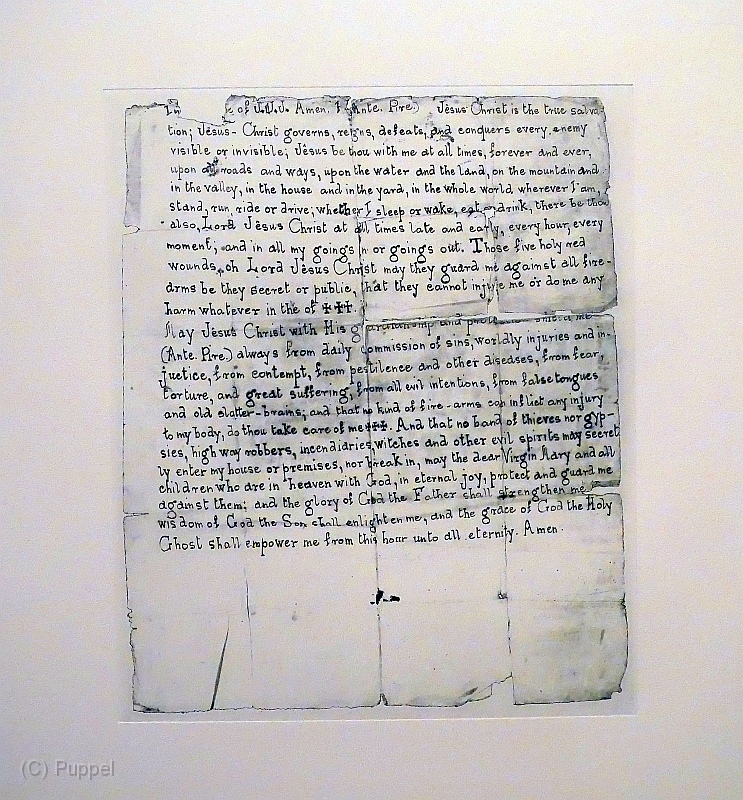 In e of J.J.J. Amen. I (Ante. Pire.) Jesus Christ is the true salva
tion; Jesus-Christ governs, reigns, defeats, and conquers every enemy
visible or invisible; Jesus be thou with me at all times, forever and ever,
upon all roads and ways, upon the water and the land, on the mountain and
in the valley, in the house and in the yard, in the whole world wherever I am,
stand, run, ride or drive; whether I sleep or wake, eat or drink, there be thou
also, Lord Jesus Christ at all times late and early, every hour, every
moment; and in all my goings in or goings out. Those five holy red
wounds, oh Lord Jesus Christ may they guard me against all fire-
arms be they secret or public, that they cannot injure me or do me any
harm whatever in the of ✠✠✠.
May Jesus Christ with His guardianship and me
(Ante. Pire.) always from daily commission of sins, worldly injuries and in-
justice, from contempt, from pestilence and other diseases, from fear,
torture, and great suffering, from all evil intentions, from false tongues
and old slatter-brains; and that no kind of fire-arms can inflict any injury
to my body, do thou take care of me ✠✠✠. And that no band of thieves nor gyp-
sies, high way robbers, incendiaries, witches and other evil spirits may secret
ly enter my house or premises, nor break in, may the dear Virgin Mary and all
children who are in heaven with God, in eternal joy, protect and guard me
against them: and the glory of God the Father shall strengthen me
wisdom of God the Son shall enlighten me, and the grace of God the Holy
Ghost shall empower me from this hour unto all eternity. Amen.
(C) Puppel